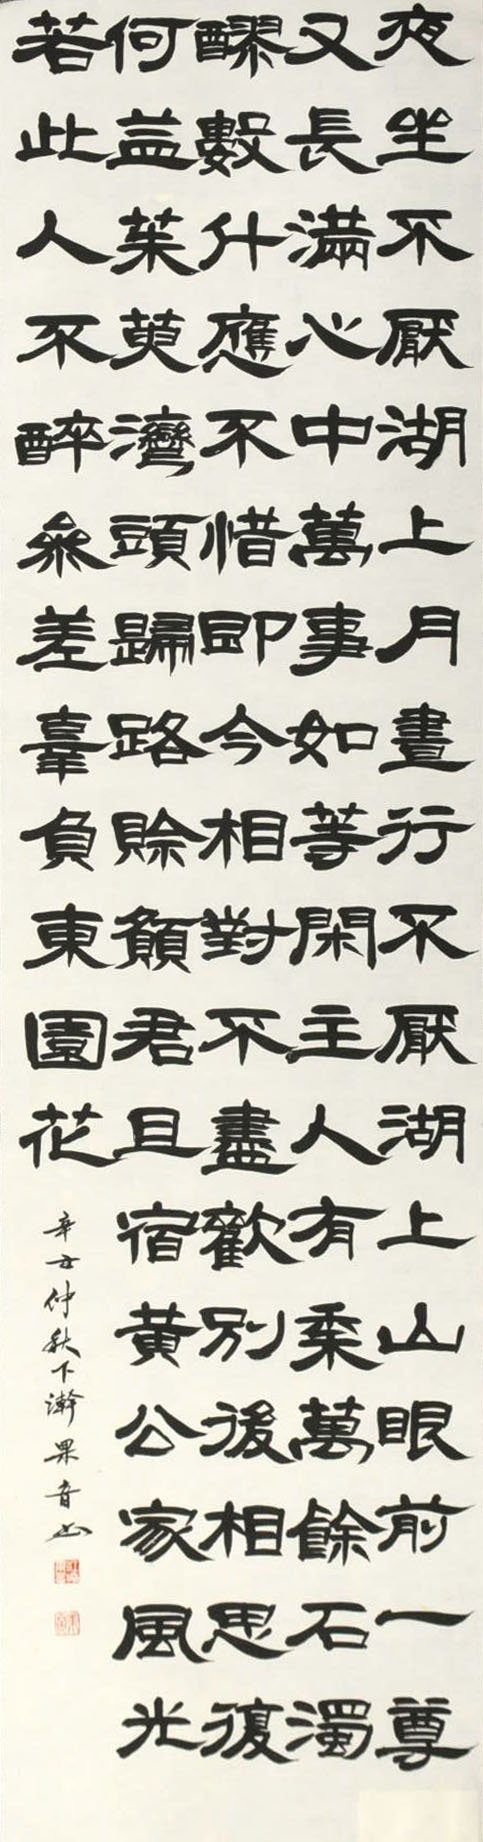 夜坐不厭湖上月晝行不厭湖上山眼前一尊
又長滿心中萬事如等閑主人有黍萬餘石濁
醪數什應不惜即今相對不盡歡別後相思復
何益茱萸灣頭歸路賒願君且宿黃公家風光
若此人不醉參差辜負東園花
辛丑仲秋下澣果音書